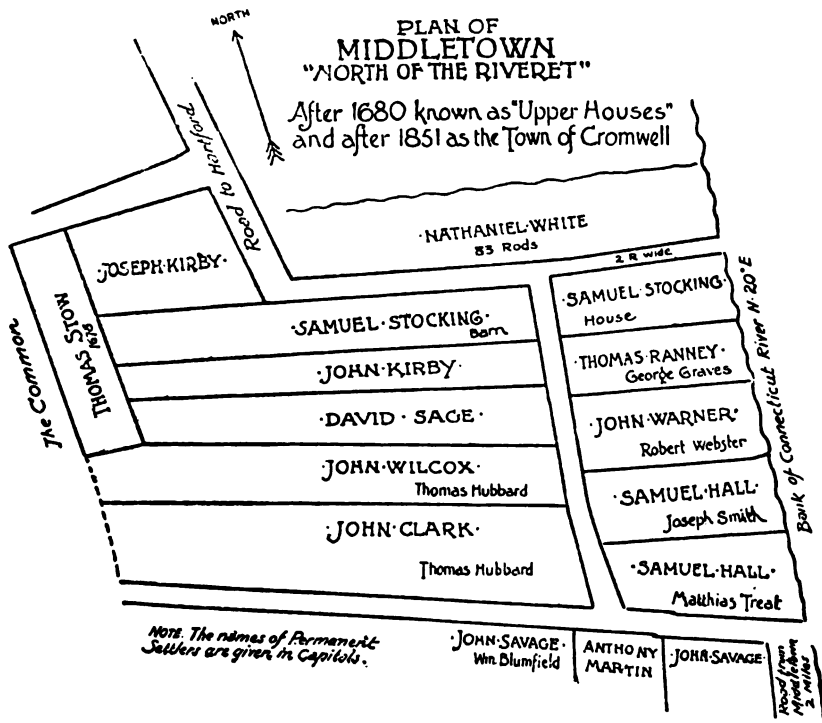 PLAN OF
MIDDLETOWN
"NORTH OF THE RIVERET"
After 1680 known as "Upper Houses"
and after 1851 as the Town of Cromwell
NORTH
Road to Hartford
·NATHANIEL·WHITE
83 Rods
2 R wide
·JOSEPH·KIRBY·
THOMAS STOW
The Common
·SAMUEL·STOCKING·
Barn
·JOHN·KIRBY·
·DAVID·SAGE·
·JOHN·WILCOX·
Thomas Hubbard
·JOHN·CLARK·
Thomas Hubbard
·SAMUEL·STOCKING·
House
·THOMAS·RANNEY·
George Graves
·JOHN·WARNER·
Robert Webster
·SAMUEL·HALL·
Joseph Smith
·SAMUEL·HALL·
Matthias Treat
Bank of Connecticut River N·20°E
NOTE. The names of Permanent
Settlers are given in Capitols.
·JOHN·SAVAGE·
Wm Blumfield
ANTHONY
MARTIN
·JOHN·SAVAGE·
Road from
Middletown
2 Miles